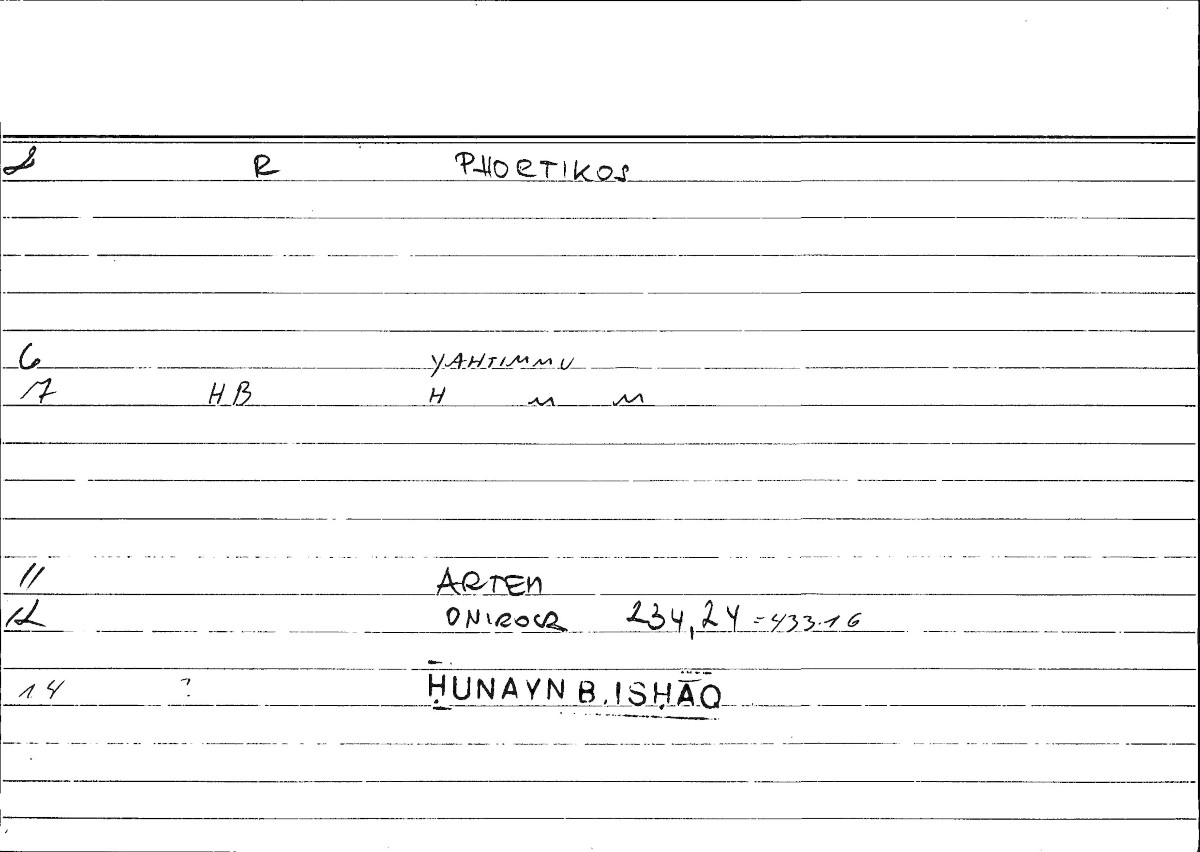 2 R PHORTIKOS
6 YAHTIMMU
7 HB H M M
11 ARTEM
12 ONIROCR 234,24 = 433.16
14 ? ḤUNAYN B. ISḤĀQ